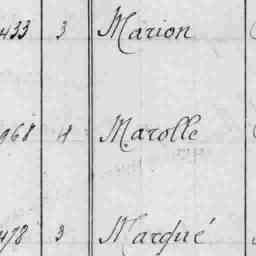 433 3 Marion
968 4 Marolle
478 3 Marqué